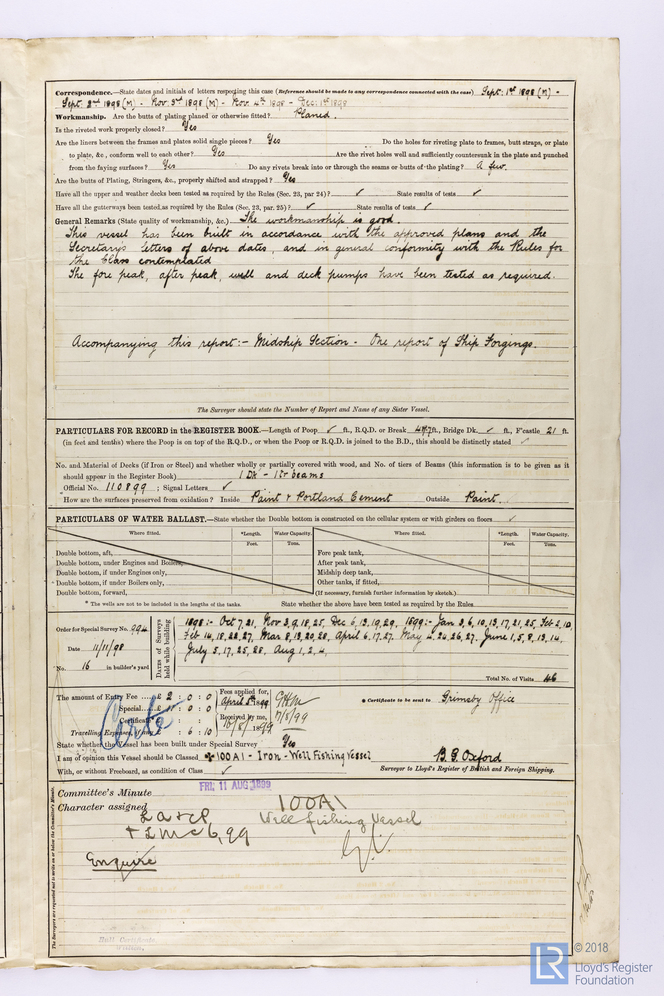 Correspondence.—State dates and initials of letters respecting this case (Reference should be made to any correspondence connected with the case) Sept. 1st 1898 (M) -
Sept. 2nd 1898 (M) - Nov. 3rd 1898 (M) - Nov. 4th 1898 - Dec: 1st 1898
Workmanship. Are the butts of plating planed or otherwise fitted? Planed.
Is the riveted work properly closed? Yes
Are the liners between the frames and plates solid single pieces? Yes Do the holes for riveting plate to frames, butt straps, or plate
to plate, &c., conform well to each other? Yes Are the rivet holes well and sufficiently countersunk in the plate and punched
from the faying surfaces? Yes Do any rivets break into or through the seams or butts of the plating? A few.
Are the butts of Plating, Stringers, &c., properly shifted and strapped? Yes
Have all the upper and weather decks been tested as required by the Rules (Sec. 23, par 24)? ✓ State results of tests ✓
Have all the gutterways been tested as required by the Rules (Sec. 23, par. 25)? ✓ State results of tests ✓
General Remarks (State quality of workmanship, &c.) The workmanship is good.
This vessel has been built in accordance with the approved plans and the
Secretary's letters of above dates, and in general conformity with the Rules for
the Class contemplated
The fore peak, after peak, well and deck pumps have been tested as required.
Accompanying this report:- Midship Section - One report of Ship Forgings.
The Surveyor should state the Number of Report and Name of any Sister Vessel.
PARTICULARS FOR RECORD in the REGISTER BOOK.—Length of Poop ✓ ft., R.Q.D. or Break ft., Bridge Dk. ✓ ft., F'castle 21 ft.
(in feet and tenths) where the Poop is on top of the R.Q.D., or when the Poop or R.Q.D. is joined to the B.D., this should be distinctly stated ✓
No. and Material of Decks (if Iron or Steel) and whether wholly or partially covered with wood, and No. of tiers of Beams (this information is to be given as it
should appear in the Register Book) 1 Dk - 1 tr beams
Official No. 110899 ; Signal Letters ✓
How are the surfaces preserved from oxidation? Inside Paint & Portland Cement Outside Paint.
PARTICULARS OF WATER BALLAST.—State whether the Double bottom is constructed on the cellular system or with girders on floors ✓
Where fitted. *Length. Water Capacity. Where fitted. *Length. Water Capacity.
Feet. Tons. Feet. Tons.
Double bottom, aft, Fore peak tank,
Double bottom, under Engines and Boilers, After peak tank,
Double bottom, if under Engines only, Midship deep tank,
Double bottom, if under Boilers only, Other tanks, if fitted,
Double bottom, forward, (If necessary, furnish further information by sketch.)
* The wells are not to be included in the lengths of the tanks. State whether the above have been tested as required by the Rules
Order for Special Survey No. 994
Date 11/11/98
No. 16 in builder's yard
Dates of Surveys held while building
1898:- Oct 7, 21, Nov 3, 9, 18, 25, Dec 6, 13, 19, 29, 1899:- Jan 3, 6, 10, 13, 17, 21, 25, Feb 2, 10,
Feb 14, 18, 22, 27, Mar 8, 13, 20, 28, April 6, 17, 27, May 4, 24, 26, 27, June 1, 5, 8, 13, 14,
July 5, 17, 25, 28, Aug 1, 2, 4.
Total No. of Visits 46
The amount of Entry Fee £ 2 : 0 : 0 Fees applied for, * Certificate to be sent to Grimsby Office
Special £ : 0 : 0
Certificate Received by me,
Travelling Expenses : 6 : 10
Certe
State whether the Vessel has been built under Special Survey Yes
I am of opinion this Vessel should be Classed ✠ 100A1 - Iron - Well Fishing Vessel
B. G. Oxford
With, or without Freeboard, as condition of Class ✓ Surveyor to Lloyd's Register of British and Foreign Shipping.
Committee's Minute FRI. 11 AUG 1899
Character assigned 100A1
Well fishing Vessel
+ LMC 6,99
Enquire
The Surveyors are requested not to write on or below the Committee's Minute.
© 2018
LR
Lloyd's Register
Foundation